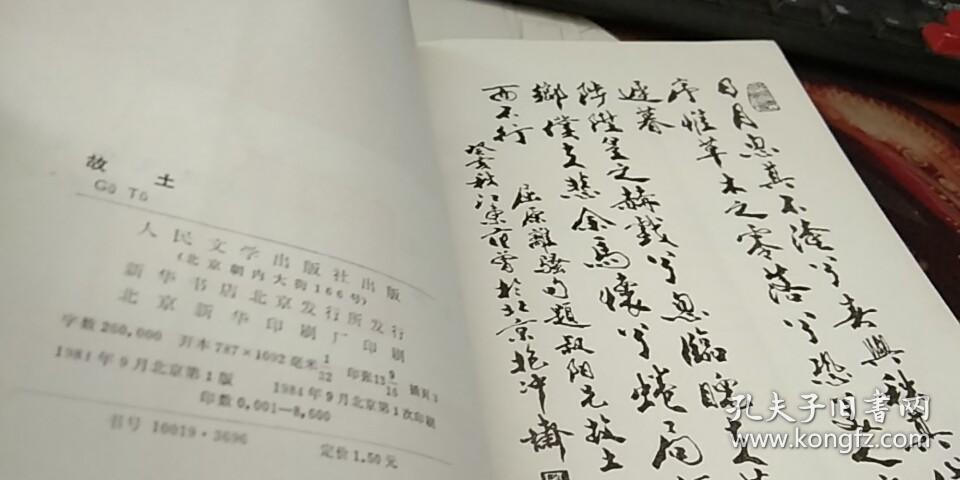 故 土
Gù Tǔ
人民文学出版社出版
(北京朝内大街166号)
新华书店北京发行所发行
北京新华印刷厂印刷
字数260,000 开本787×1092毫米1/32 印张13 9/16 插页3
1984年9月北京第1版 1984年9月北京第1次印刷
印数0,001—8,600
书号 10019·3696
定价1.50元
日月忽其不淹兮春與秋其代
序惟草木之零落兮恐美人之
遲暮
陟陞皇之赫戲兮忽臨睨夫舊
鄉僕夫悲余馬懷兮蜷局顧
而不行
屈原離騷句題蘇陽兄故土
癸亥秋江東范曾於北京抱沖齋
孔夫子旧书网
www.kongfz.com